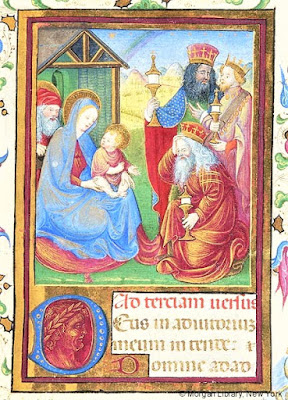 Ad terciam versus
DEus in adiutoriuz
meum in tende: r
Domine ad ad
© Morgan Library, New York